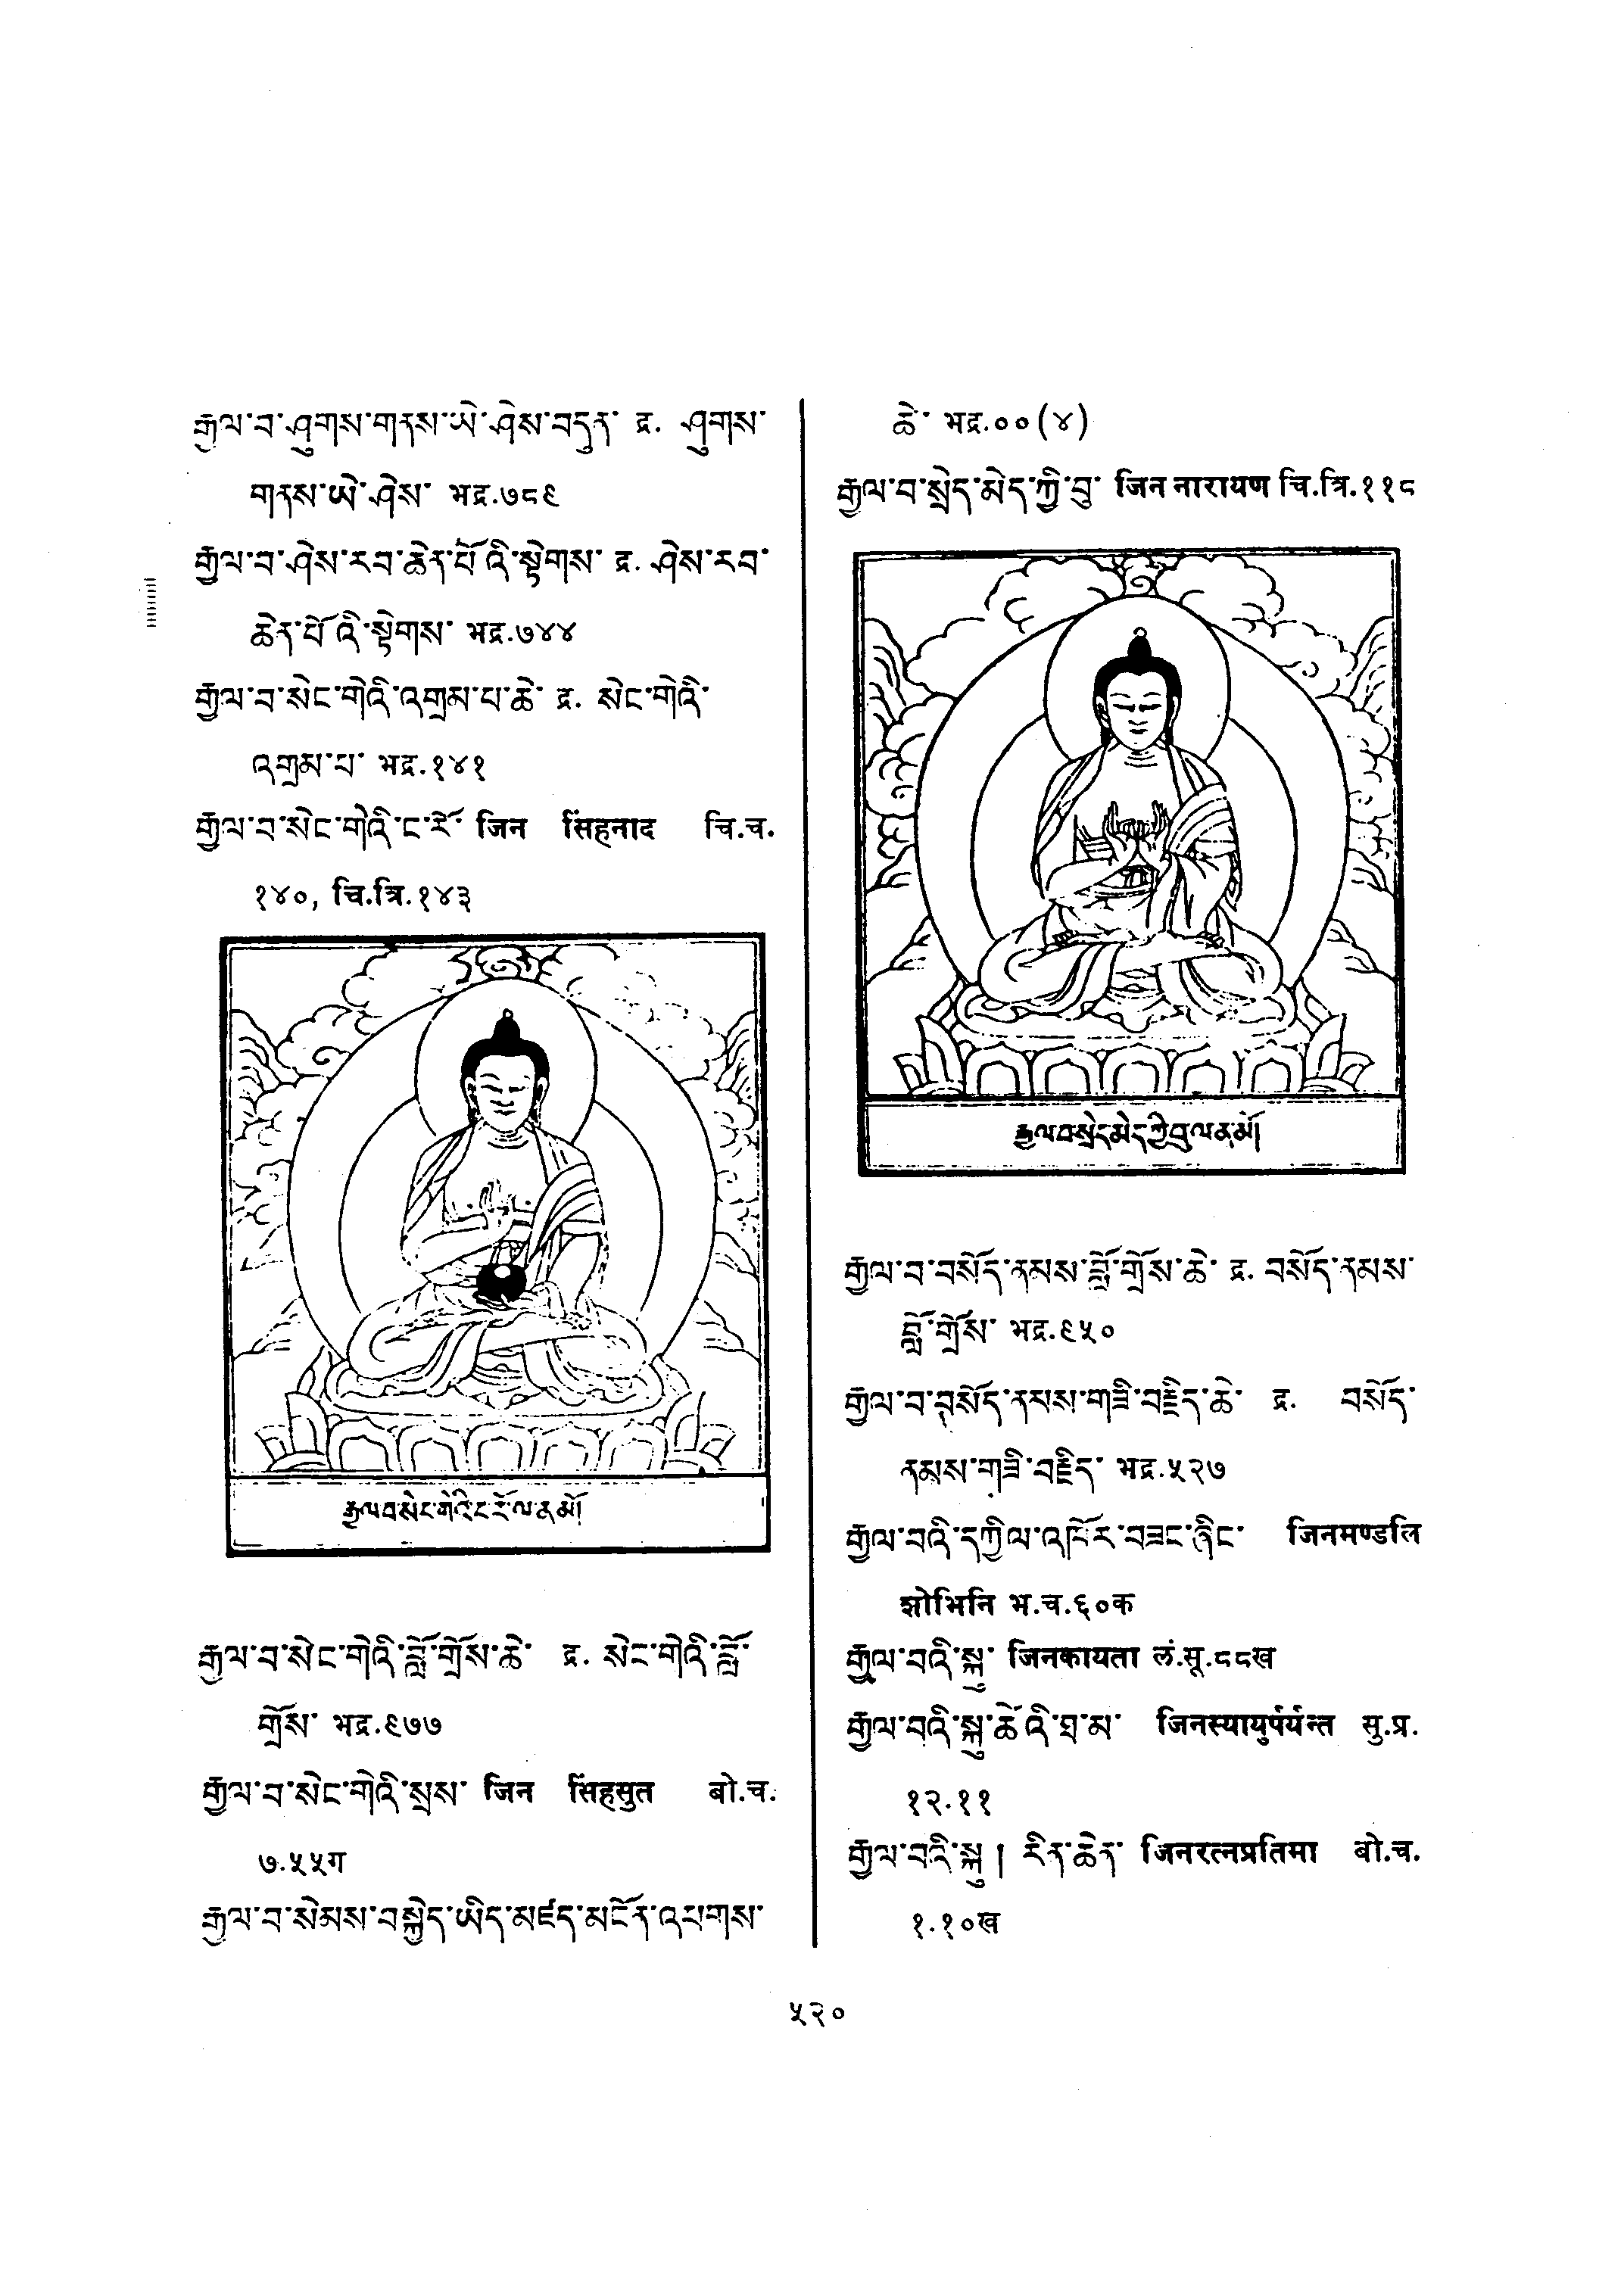 རྒྱལ་བ་ཤུགས་གནས་ཡེ་ཤེས་བདུན་ द्र. ཤུགས་
གནས་ཡེ་ཤེས་ भद्र.७८९
རྒྱལ་བ་ཤེས་རབ་ཆེན་པོའི་སྟེགས་ द्र. ཤེས་རབ་
ཆེན་པོའི་སྟེགས་ भद्र.७४४
རྒྱལ་བ་སེང་གེའི་འགྲམ་པ་ཆེ་ द्र. སེང་གེའི་
འགྲམ་པ་ भद्र.१४१
རྒྱལ་བ་སེང་གེའི་ང་རོ་ जिन सिंहनाद चि.च.
१४०, चि.त्रि.१४३
རྒྱལ་བ་སེང་གེའི་ང་རོ་ལ་ན་མོ།
རྒྱལ་བ་སེང་གེའི་བློ་གྲོས་ཆེ་ द्र. སེང་གེའི་བློ་
གྲོས་ भद्र.९७७
རྒྱལ་བ་སེང་གེའི་སྲས་ जिन सिंहसुत बो.च.
७.५५ग
རྒྱལ་བ་སེམས་བསྐྱེད་ཡིད་མཛད་མངོན་འཕགས་
ཆེ་ भद्र.००(४)
རྒྱལ་བ་སྲེད་མེད་ཀྱི་བུ་ जिन नारायण चि.त्रि.११८
རྒྱལ་བ་སྲེད་མེད་ཀྱི་བུ་ལ་ན་མོ།
རྒྱལ་བ་བསོད་ནམས་བློ་གྲོས་ཆེ་ द्र. བསོད་ནམས་
བློ་གྲོས་ भद्र.९५०
རྒྱལ་བ་བསོད་ནམས་གཟི་བརྗིད་ཆེ་ द्र. བསོད་
ནམས་གཟི་བརྗིད་ भद्र.५२७
རྒྱལ་བའི་དཀྱིལ་འཁོར་བཟང་ཞིང་ जिनमण्डलि
शोभिनि भ.च.६०क
རྒྱལ་བའི་སྐུ་ जिनकायता लं.सू.८८ख
རྒྱལ་བའི་སྐུ་ཚེའི་ཐ་མ་ जिनस्यायुर्पर्यन्त सु.प्र.
१२.११
རྒྱལ་བའི་སྐུ། རིན་ཆེན་ जिनरत्नप्रतिमा बो.च.
१.१०ख
५२०